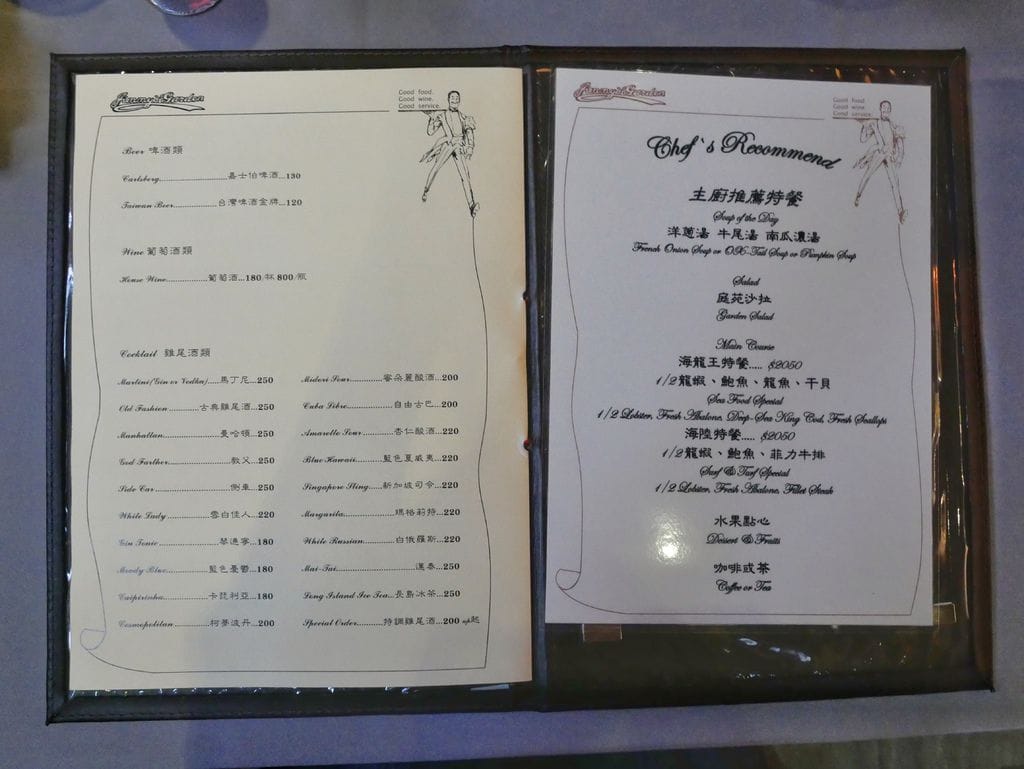 Jimmy's Garden
Good food.
Good wine.
Good service.
Beer 啤酒類
Carlsberg..............................嘉士伯啤酒...130
Taiwan Beer...................台灣啤酒金牌...120
Wine 葡萄酒類
House Wine..................葡萄酒...180/杯 800/瓶
Cocktail 雞尾酒類
Martini(Gin or Vodka).....馬丁尼...250
Old Fashion...........古典雞尾酒...250
Manhattan....................曼哈頓...250
God Farther.....................教父...250
Side Car...........................側車...250
White Lady................雪白佳人...220
Gin Tonic.......................琴通寧...180
Moody Blue................藍色憂鬱...180
Caipirinha................卡琵利亞...180
Cosmopolitan............柯夢波丹...200
Midori Sour...........蜜朵麗酸酒...200
Cuba Libre................自由古巴...200
Amaretto Sour............杏仁酸酒...220
Blue Hawaii.........藍色夏威夷...220
Singapore Sling.....新加坡司令...220
Margarita...................瑪格莉特...220
White Russian...........白俄羅斯...220
Mai-Tai...........................邁泰...250
Long Island Ice Tea...長島冰茶...250
Special Order.........特調雞尾酒...200 up起
Jimmy's Garden
Good food.
Good wine.
Good service.
Chef's Recommend
主廚推薦特餐
Soup of the Day
洋蔥湯 牛尾湯 南瓜濃湯
French Onion Soup or OX-Tail Soup or Pumpkin Soup
Salad
庭苑沙拉
Garden Salad
Main Course
海龍王特餐..... $2050
1/2龍蝦、鮑魚、龍魚、干貝
Sea Food Special
1/2 Lobster, Fresh Abalone, Deep-Sea King Cod, Fresh Scallops
海陸特餐..... $2050
1/2龍蝦、鮑魚、菲力牛排
Surf & Turf Special
1/2 Lobster, Fresh Abalone, Fillet Steak
水果點心
Dessert & Fruits
咖啡或茶
Coffee or Tea